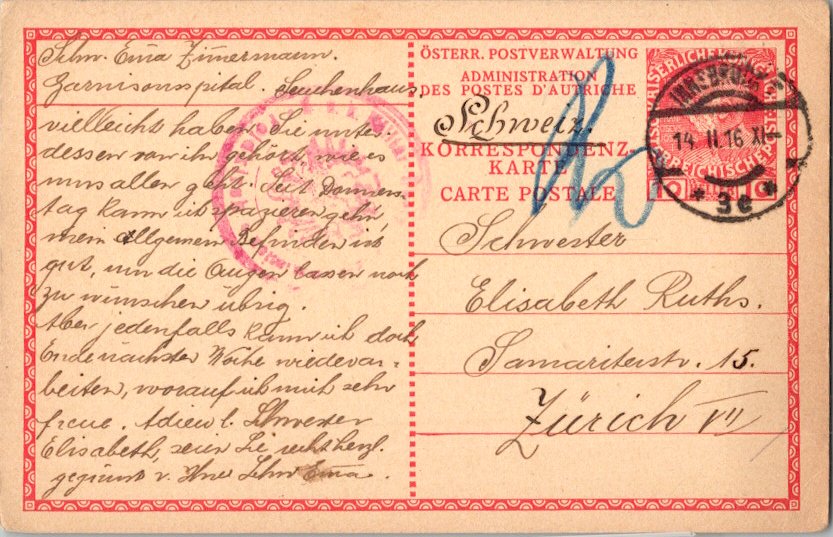 Schw. Ema Zimermann.
Garnisonsspital. Seuchenhaus.
vielleicht haben Sie unter-
dessen von ihr gehört, wie es
uns allen geht. Seit Donners-
tag kann ich spazieren gehn
mein allgemein Befinden ist
gut, um die Augen lassen noch
zu wünschen übrig.
Aber jedenfalls kann ich doch
Ende nächster Woche wiederar-
beiten, worauf ich mich sehr
freue. Adieu l. Schwester
Elisabeth, seien Sie recht herzl.
gegrüsst v. Ihrer Schw Ema.
ÖSTERR. POSTVERWALTUNG
ADMINISTRATION
DES POSTES D'AUTRICHE
Schweiz.
KORRESPONDENZ-
KARTE
CARTE POSTALE
INNSBRUCK
14 II 16 XII
* 3e *
10
Schwester
Elisabeth Ruths.
Samariterstr. 15.
Zürich VII